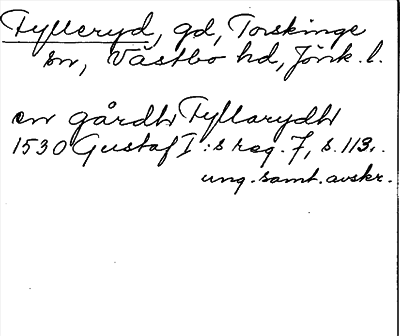 Fylleryd, gd, Torskinge
sn, Västbo hd, Jönk. l.
en gårdh Fyllarydh
1530 Gustaf I:s reg. 7, s. 113.
ung. samt. avskr.